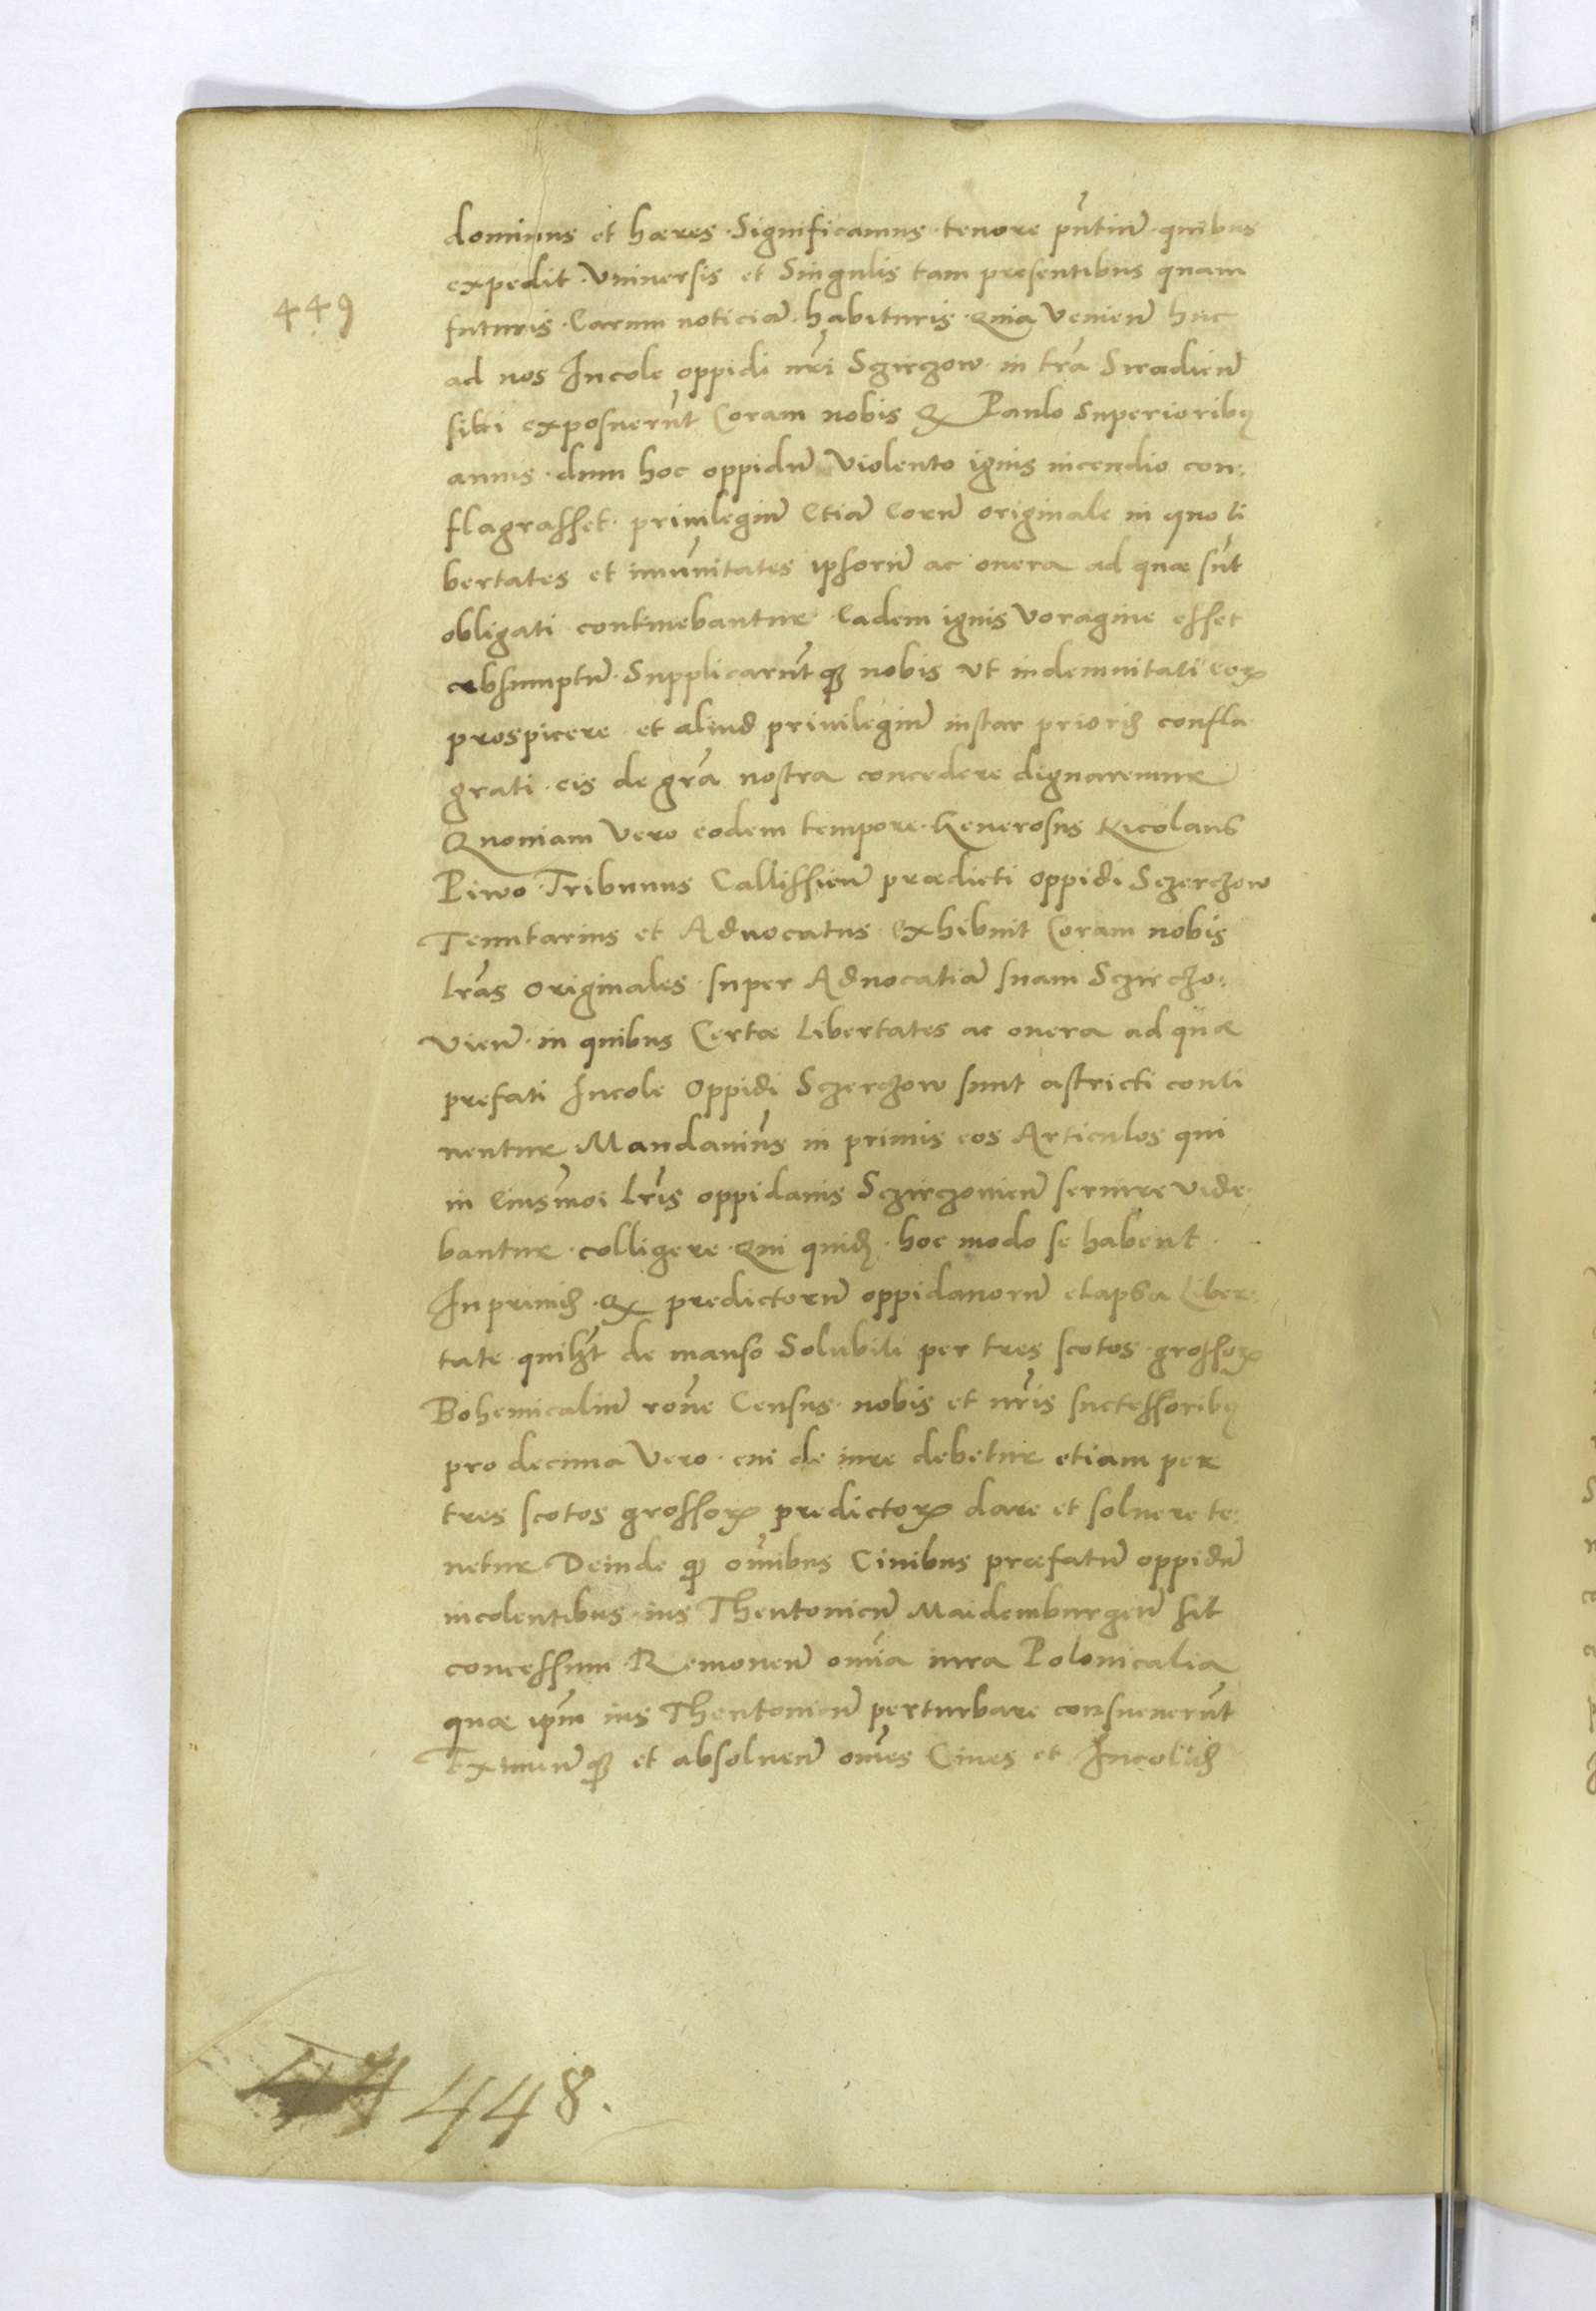 dominus et hæres Significamus tenore pntium quibus
expedit Vniuersis et Singulis tam presentibus quam
449
futuris Earum noticiã habituris Quia Venieñ huc
ad nos Incole oppidi nri Sczirczow in tra Siradień
siti exposuerũt Coram nobis Q Paulo Superioribꝫ
annis dum hoc oppidũ Violento ignis incendio con:
flagrasset priuilegiũ Etiã Eorũ originale in quo li
bertates et imũnitates ipsorũ ac onera ad quæ sũt
obligati continebantur Eadem ignis Voragine esset
absumptũ Supplicarũtqꝫ nobis Vt indemnitati eoꝝ
prospicere et aliud priuilegiũ instar prioris confla
grati eis de gra nostra concedere dignaremur
Quoniam Vero eodem tempore Generosus Nicolaus
Piwo Tribunus Callissień prædicti oppidi Sczerczow
Tenutarius et Aduocatus Exhibuit Coram nobis
lras originales super Aduocatiã suam Sczirczo:
vień in quibus Certæ Libertates ac onera ad quæ
prefati Incole Oppidi Sczerczow sunt astricti conti
nentur Mandauimus in primis eos Articulos qui
in Eiusmoi lris oppidanis Sczirczouień seruire vide
bantur colligere Qui quidẽ hoc modo se habent
Inprimis Q predictorũ oppidanorũ elapsa Liber:
tate quilꝫt de manso Solubili per tres scotos grossoꝝ
Bohemicaliũ rone Census nobis et nris successoribꝫ
pro decima Vero cui de iure debetur etiam per
tres scotos grossoꝝ predictoꝝ dare et soluere te:
netur Deinde qꝫ omibus Ciuibus præfatũ oppidũ
incolentibus ius Theutonicũ Maidemburgeñ sit
concessum Remoueñ omia iura Polonicalia
quæ ipm ius Theutonicũ perturbare consueuerũt
Eximeñqꝫ et absolueñ omes Ciues et Incolas
448.